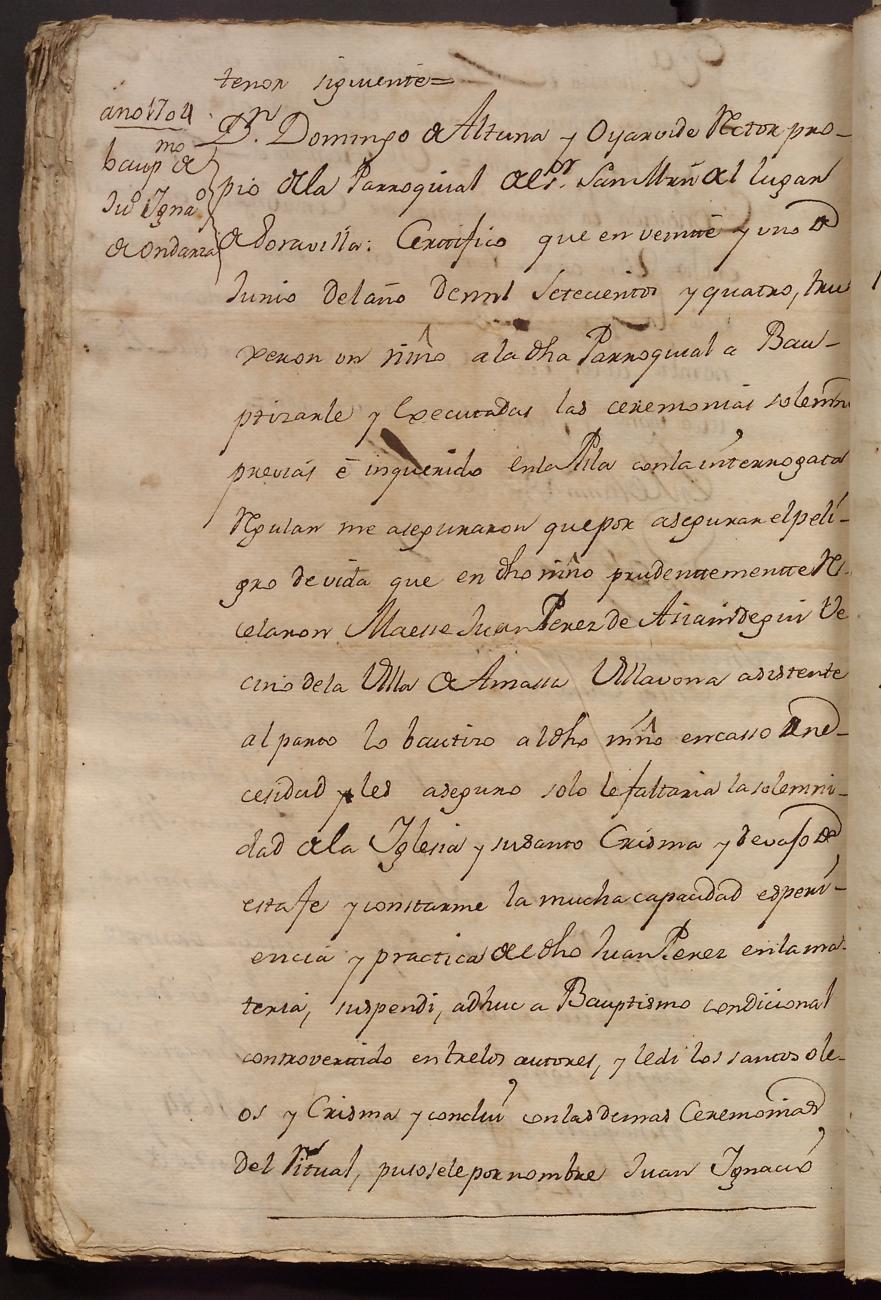 tenor siguiente=
año 1704
baupmo de
Juº Ignaº
de Ondarza
Dn. Domingo de Altuna y Oyarvide Rector pro-
pio de la Parroquial de Sr. San Mrn del lugar
de Soravilla: Certifico que en veinte y uno de
Junio del año de mil setecientos y quatro, tru
xeron un niño a la dha Parroquial a Bau-
ptizarle y Executadas las ceremonias solemn
previas é inquerido en la Pila con la interrogata
Regular me aseguraron que por asegurar el peli-
gro de vida que en dho niño prudentemente Re
celaron Maesse Juan Perez de Assiayndegui Ve
cino de la Villa de Amassa Villavona asistente
al parto lo bautizo al dho niño en casso de ne-
cesidad y les aseguro solo le faltaria la solemni-
dad de la Iglesia y su santo Crisma y devaso de
esta fe y constarme la mucha capacidad esperi-
encia y practica de el dho Juan Perez en la ma-
teria, suspendi, adhuc a Bauptismo condicional
controvertido entre los autores, y le di los santos ole-
os y Crisma y conclui con las demas Ceremonias
del Ritual, pusosele por nombre Juan Ignacio